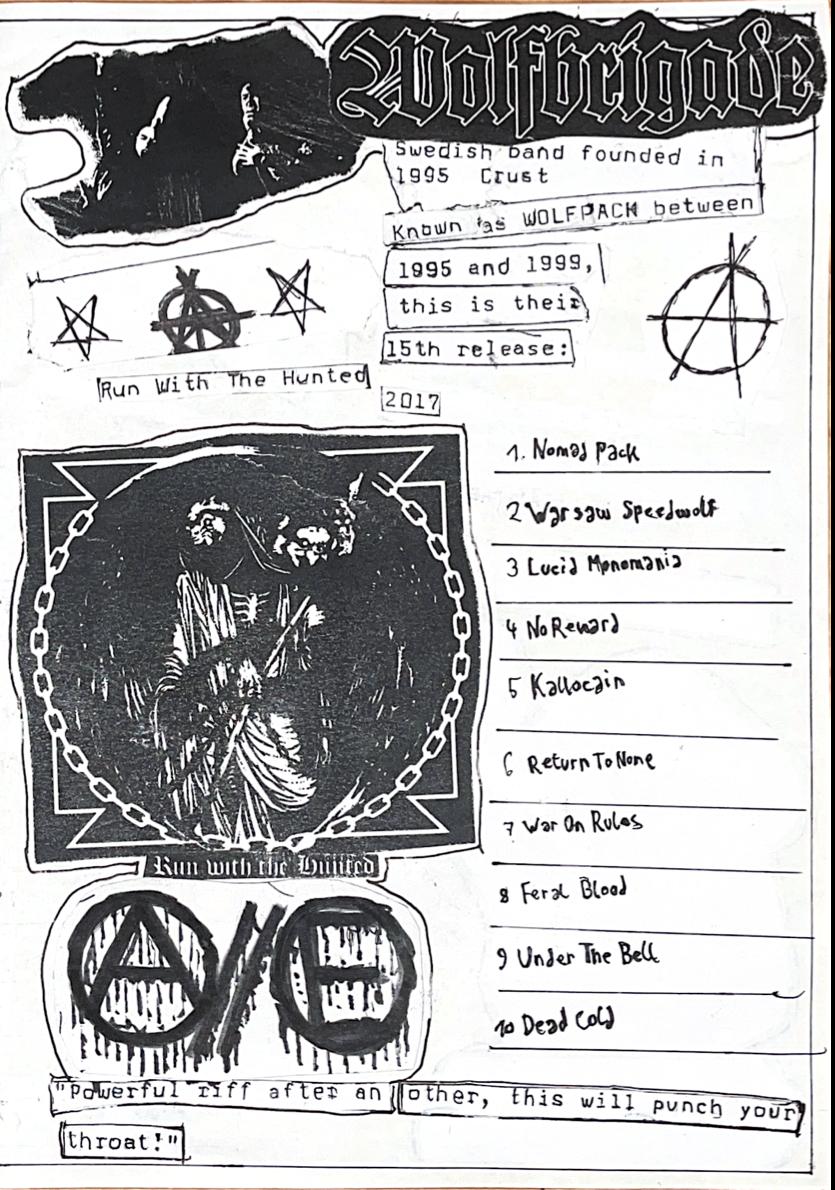 Wolfbrigade
Swedish band founded in
1995 Crust
Known as WOLFPACK between
1995 and 1999,
this is their
15th release:
Run With The Hunted
2017
1. Nomad Pack
2 Warsaw Speedwolf
3 Lucid Monomania
4 No Reward
5 Kallocain
6 Return To None
7 War On Rules
8 Feral Blood
9 Under The Bell
10 Dead Cold
Run with the Hunted
A//E
"Powerful riff after an other, this will punch your
throat!"